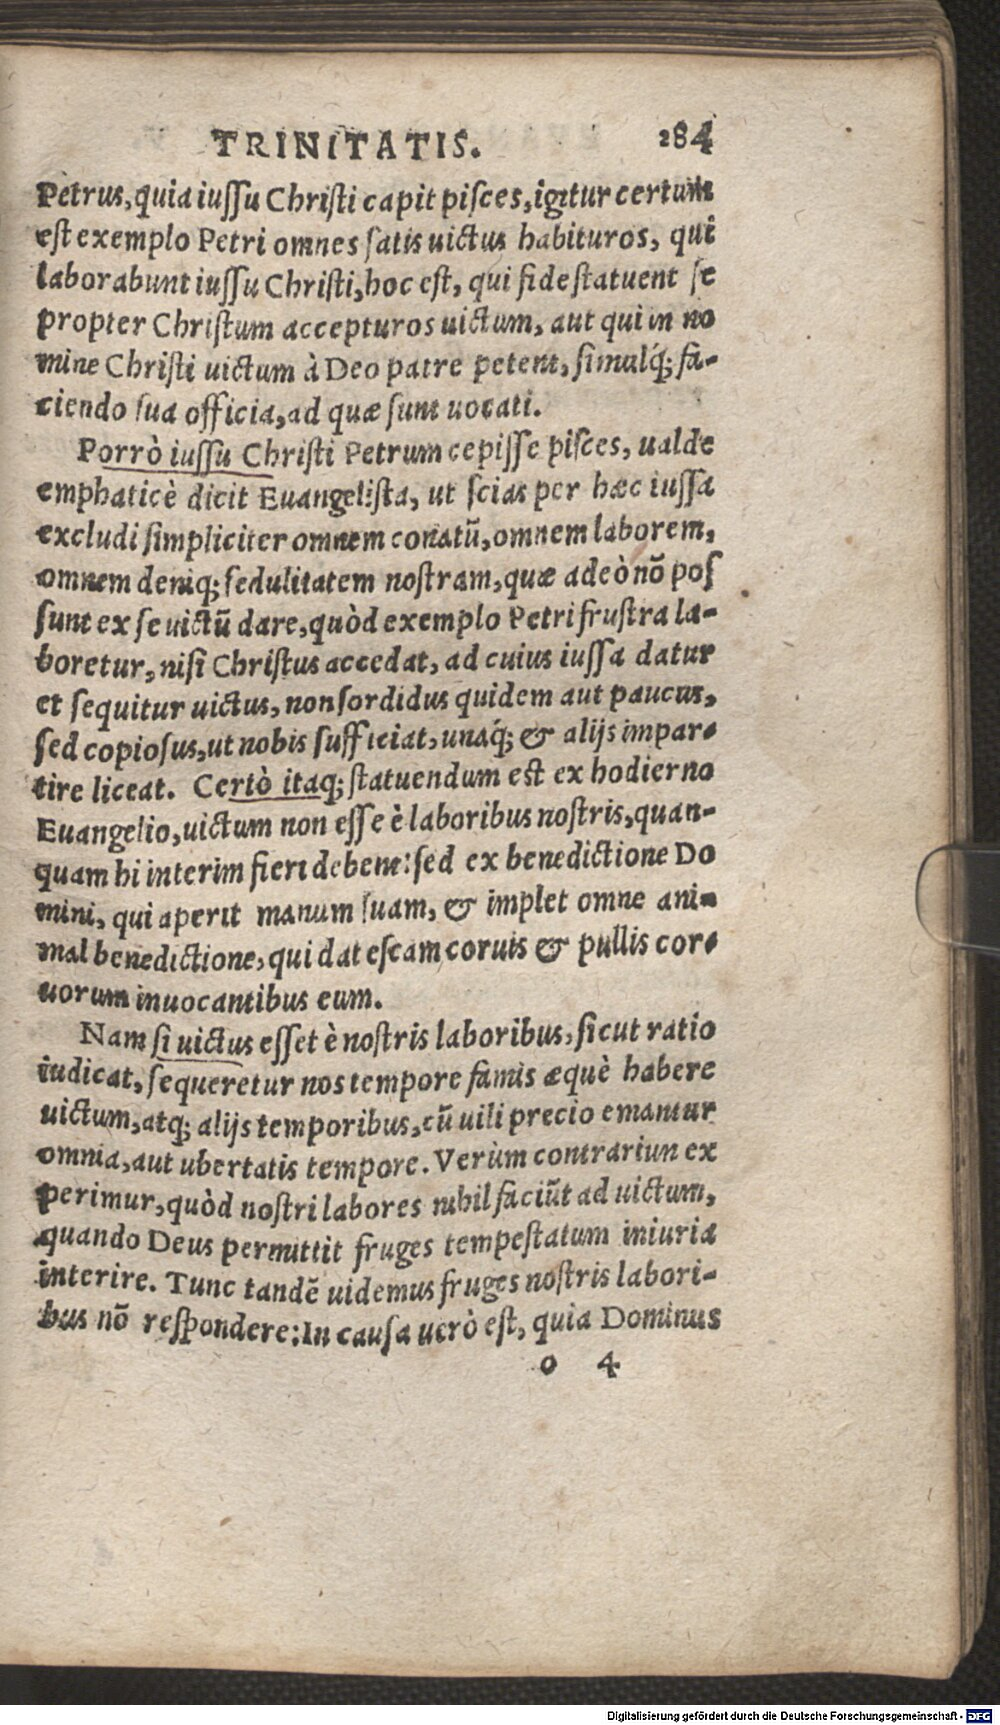 TRINITATIS. 284
Petrus, quia iussu Christi capit pisces, igitur certum
est exemplo Petri omnes satis uictus habituros, qui
laborabunt iussu Christi, hoc est, qui fide statuent se
propter Christum accepturos uictum, aut qui in no
mine Christi uictum à Deo patre petent, simulq́; fa-
ciendo sua officia, ad quæ sunt uocati.
Porrò iussu Christi Petrum cepisse pisces, ualde
emphaticè dicit Euangelista, ut scias per hæc iussa
excludi simpliciter omnem conatũ, omnem laborem,
omnem deniq; sedulitatem nostram, quæ adeò nõ pos
sunt ex se uictũ dare, quòd exemplo Petri frustra la-
boretur, nisi Christus accedat, ad cuius iussa datur
et sequitur uictus, non sordidus quidem aut paucus,
sed copiosus, ut nobis sufficiat, unaq́; & alijs impar-
tire liceat. Certò itaq; statuendum est ex hodierno
Euangelio, uictum non esse è laboribus nostris, quan-
quam hi interim fieri debent: sed ex benedictione Do
mini, qui aperit manum suam, & implet omne ani-
mal benedictione, qui dat escam coruis & pullis cor-
uorum inuocantibus eum.
Nam si uictus esset è nostris laboribus, sicut ratio
iudicat, sequeretur nos tempore famis æquè habere
uictum, atq; alijs temporibus, cũ uili precio emantur
omnia, aut ubertatis tempore. Verùm contrariun ex
perimur, quòd nostri labores nihil faciũt ad uictum,
quando Deus permittit fruges tempestatum iniuria
interire. Tunc tandẽ uidemus fruges nostris labori-
bus nõ respondere: In causa uerò est, quia Dominus
o 4
Digitalisierung gefördert durch die Deutsche Forschungsgemeinschaft - DFG